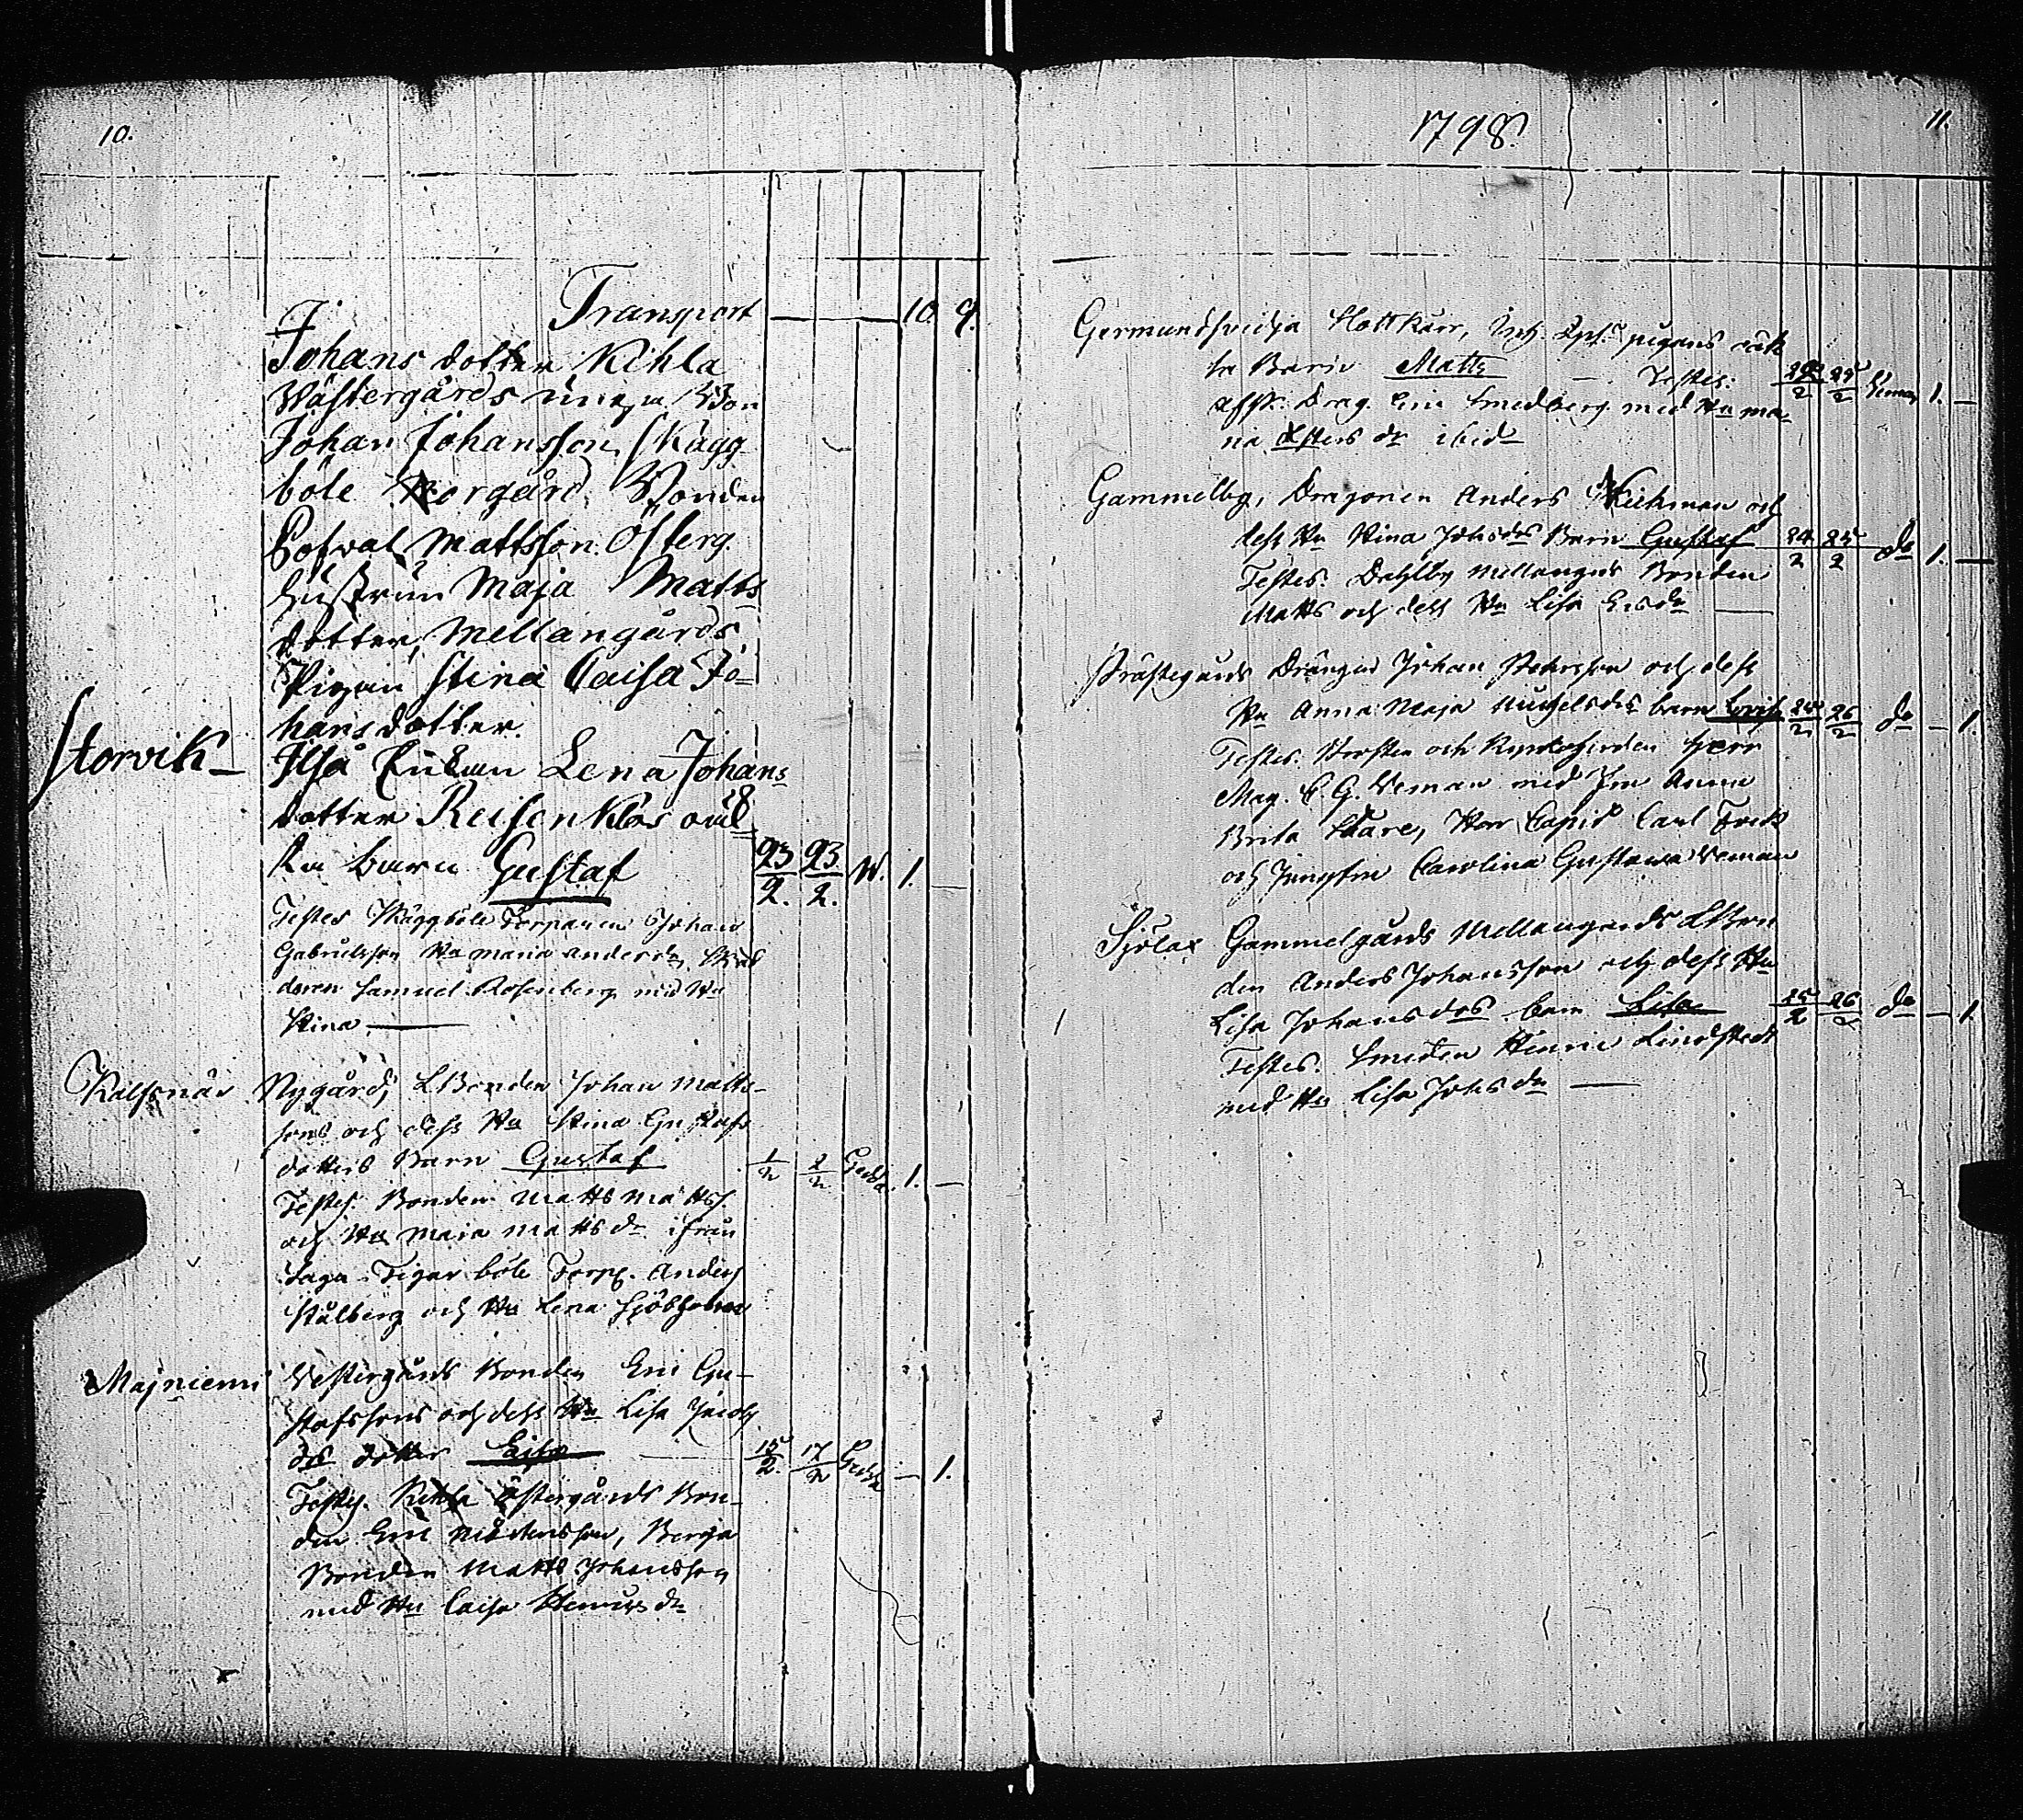 10.
Transport 10. 9.
Johans dotter Kihla
Wästergårds unga Bon
Johan Johansson, Skägg
böle Norgård Bonden
Cofwal Mattsson. Österg.
hustrun Maja Matts
dotter, Mellangårds
Pigan Stina Caisa Jo=
hans dotter.
Storvik_ Ilså Enkan Lena Johans
dotter Reisenklos oäd
ta barn Gustaf 23/2. 23/2. W. 1. —
Testes Skäggböle Torparen Johan
Gabrielsson Hu Maria Andersdr
Samuel Rosenberg med Hu
Stina
Kalsnäs Nygård, LBonden Johan Matts-
sons och dess Hu Stina Gustafs
dotters Barn Gustaf 1/2 2/2 1. —
Testes. Bonden Matts Mattss.
och Hu Maja Matts dr ifrån
Tigar böle Torp. Anders
Stålberg och Hu Lena
Majniemi Vestergårds Bonden Eric Gu-
stafssons och dess Hu Lisa Jacobs
dotter Lisa 15/2. 17/2 — 1.
Testes. Östergårds Bon-
den Eric Mårtensson, Berga
Bonden Matts Johansson
med Hu Caisa Henricsdr
1798.
11.
Germundsvidja pigans oäk
ta Barn Matts — Testes: 25/2 Veman 1. —
Drag. Eric Smedberg med Hu Ma-
ria dr ibid
Gammelby, Dragonen Anders och
dess Hu Stina Johsdrs Barn Gustaf 24/2 25/2 do 1. —
Testes. Dahlby Mellangårds Bonden
Matts och dess Hu Lisa Ersdr
Prästegårds Drängen Johan Petersson och dess
Hu Anna Maja Michelsdrs barn Lovisa 25/2 26/2 do — 1.
Testes. Prosten och Kyrkoherden Herr
Mag. C. G. Veman med Fru Anna
Brita Hare, Herr Carl Fredr
och Jungfru Carolina Gustava Veman
Sjölax Gammelgårds Mellangårds LBon
den Anders Johansson och dess Hu
Lisa Johansdrs barn Lisa 25/2 26/2 do — 1.
Testes. Smeden Henric Lindstedt
med Hu Lisa Johsdr